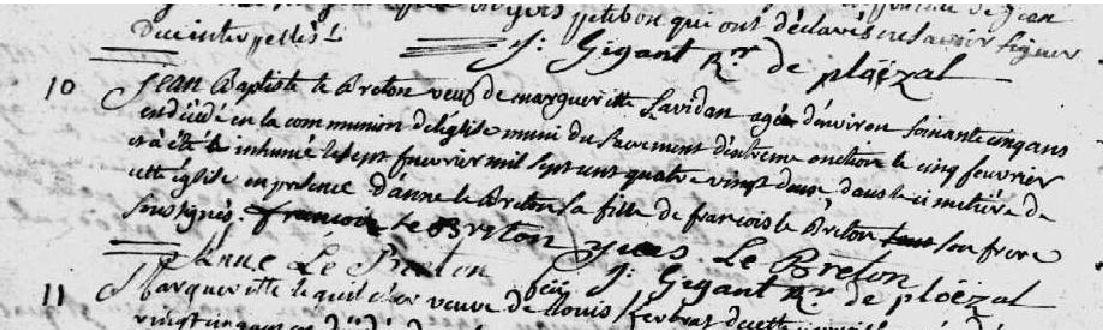 petibon qui ont déclaré ne savoir signer
De ce interpellés
J: Gigant Rr. de ploëzal
10 Jean Baptiste le Breton veuf de margueritte Lavidan agé d'environ soixante cinq ans
est décédé en la communion de l'église muni du sacrement d'extreme onction le cinq feuvrier
et a été inhumé le sept feuvrier mil sept cent quatre vingt deux, dans le cimetière de
cette église en présence d'anne le Breton sa fille de françois le Breton son frere
soussignés. françois Le Breton yves Le Breton
Anne Le Breton J: Gigant Rr. de ploëzal
11 Margueritte veuve de Louis
vingt cinq ans